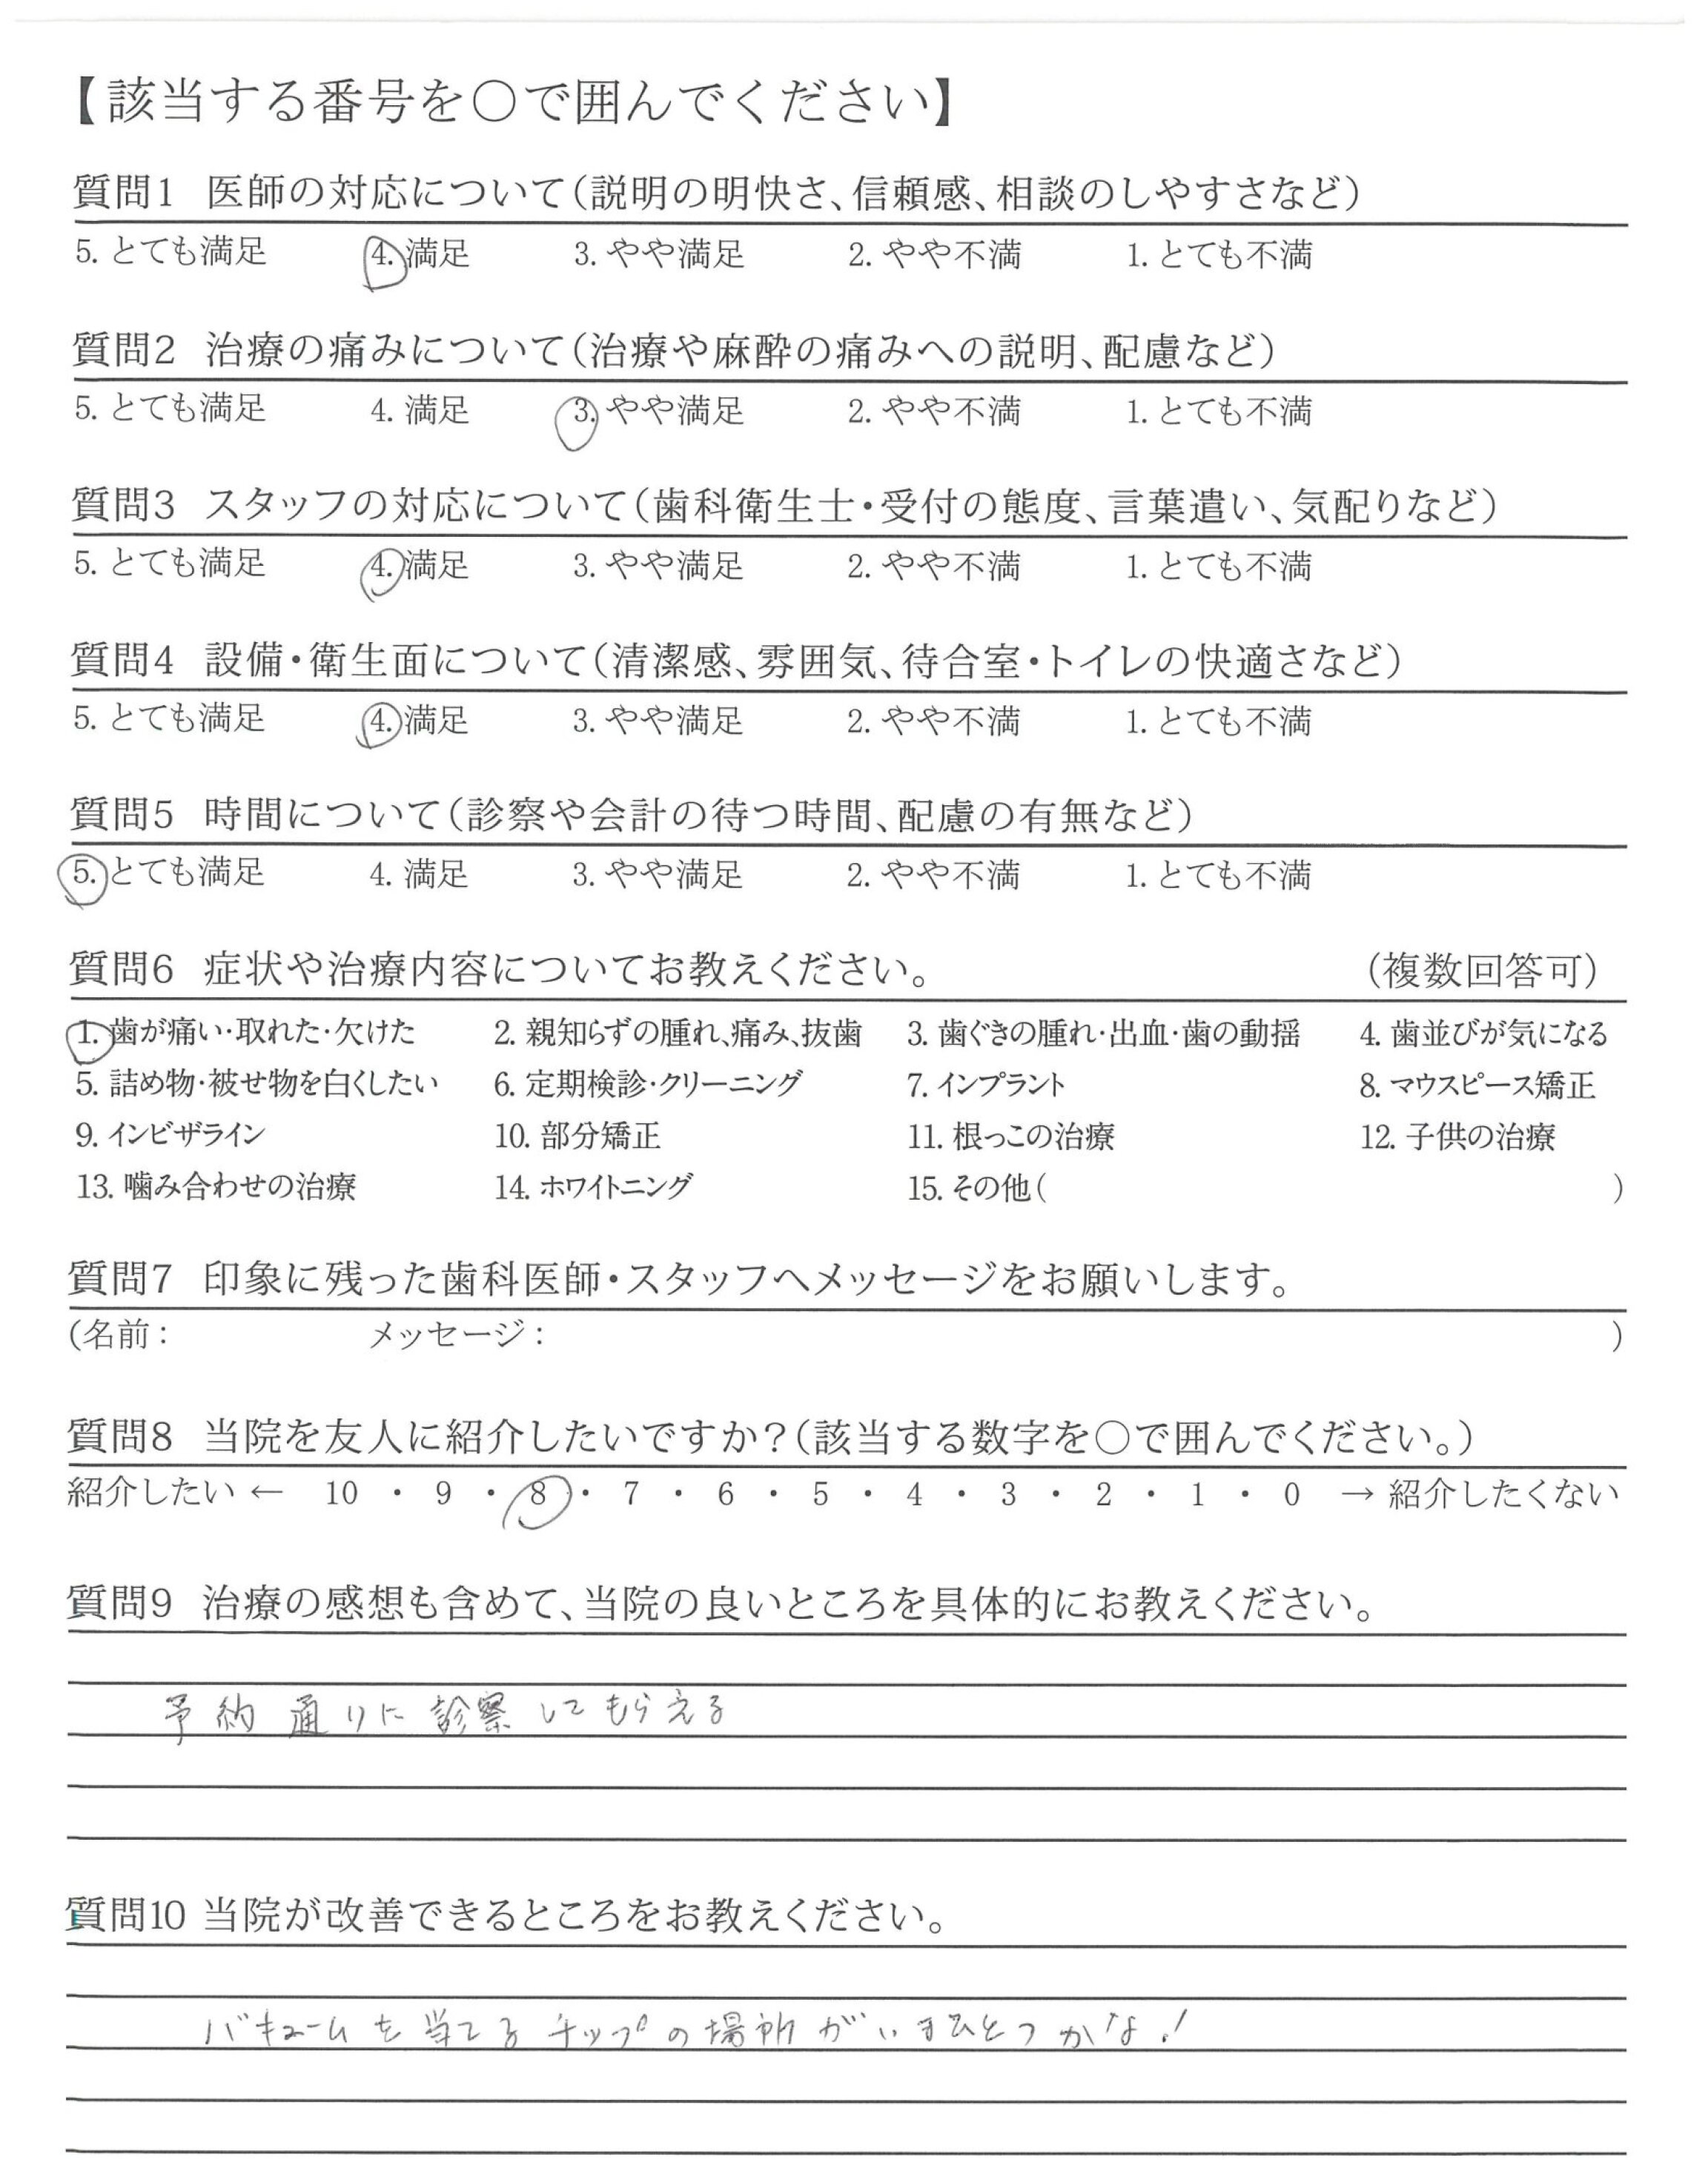 【該当する番号を〇で囲んでください】
質問1 医師の対応について(説明の明快さ、信頼感、相談のしやすさなど)
5. とても満足 4. 満足 3. やや満足 2. やや不満 1. とても不満
質問2 治療の痛みについて(治療や麻酔の痛みへの説明、配慮など)
5. とても満足 4. 満足 3. やや満足 2. やや不満 1. とても不満
質問3 スタッフの対応について(歯科衛生士・受付の態度、言葉遣い、気配りなど)
5. とても満足 4. 満足 3. やや満足 2. やや不満 1. とても不満
質問4 設備・衛生面について(清潔感、雰囲気、待合室・トイレの快適さなど)
5. とても満足 4. 満足 3. やや満足 2. やや不満 1. とても不満
質問5 時間について(診察や会計の待つ時間、配慮の有無など)
5. とても満足 4. 満足 3. やや満足 2. やや不満 1. とても不満
質問6 症状や治療内容についてお教えください。 (複数回答可)
1. 歯が痛い・取れた・欠けた 2. 親知らずの腫れ、痛み、抜歯 3. 歯ぐきの腫れ・出血・歯の動揺 4. 歯並びが気になる
5. 詰め物・被せ物を白くしたい 6. 定期検診・クリーニング 7. インプラント 8. マウスピース矯正
9. インビザライン 10. 部分矯正 11. 根っこの治療 12. 子供の治療
13. 噛み合わせの治療 14. ホワイトニング 15. その他( )
質問7 印象に残った歯科医師・スタッフへメッセージをお願いします。
(名前: メッセージ: )
質問8 当院を友人に紹介したいですか?(該当する数字を〇で囲んでください。)
紹介したい ← 10 ・ 9 ・ 8 ・ 7 ・ 6 ・ 5 ・ 4 ・ 3 ・ 2 ・ 1 ・ 0 → 紹介したくない
質問9 治療の感想も含めて、当院の良いところを具体的にお教えください。
予約通りに診察してもらえる
質問10 当院が改善できるところをお教えください。
バキュームを当てるチップの場所がいまひとつかな!